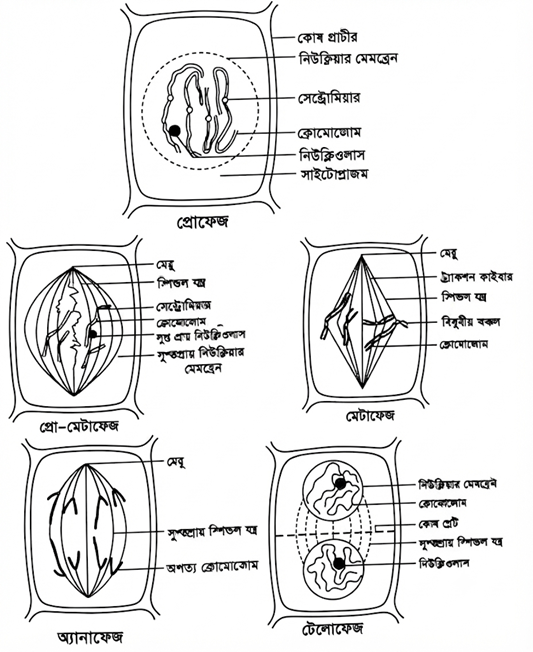 কোষ প্রাচীর
নিউক্লিয়ার মেমব্রেন
সেন্ট্রোমিয়ার
ক্রোমোজোম
নিউক্লিওলাস
সাইটোপ্লাজম
প্রোফেজ
মেরু
স্পিন্ডল যন্ত্র
সেন্ট্রোমিয়ার
ক্রোমোজোম
লুপ্ত প্রায় নিউক্লিওলাস
লুপ্তপ্রায় নিউক্লিয়ার
মেমব্রেন
প্রো-মেটাফেজ
মেরু
ট্র্যাকশন ফাইবার
স্পিন্ডল যন্ত্র
বিষুবীয় অঞ্চল
ক্রোমোজোম
মেটাফেজ
মেরু
লুপ্তপ্রায় স্পিন্ডল যন্ত্র
অপত্য ক্রোমোজোম
অ্যানাফেজ
নিউক্লিয়ার মেমব্রেন
ক্রোমোজোম
কোষ প্লেট
লুপ্তপ্রায় স্পিন্ডল যন্ত্র
নিউক্লিওলাস
টেলোফেজ